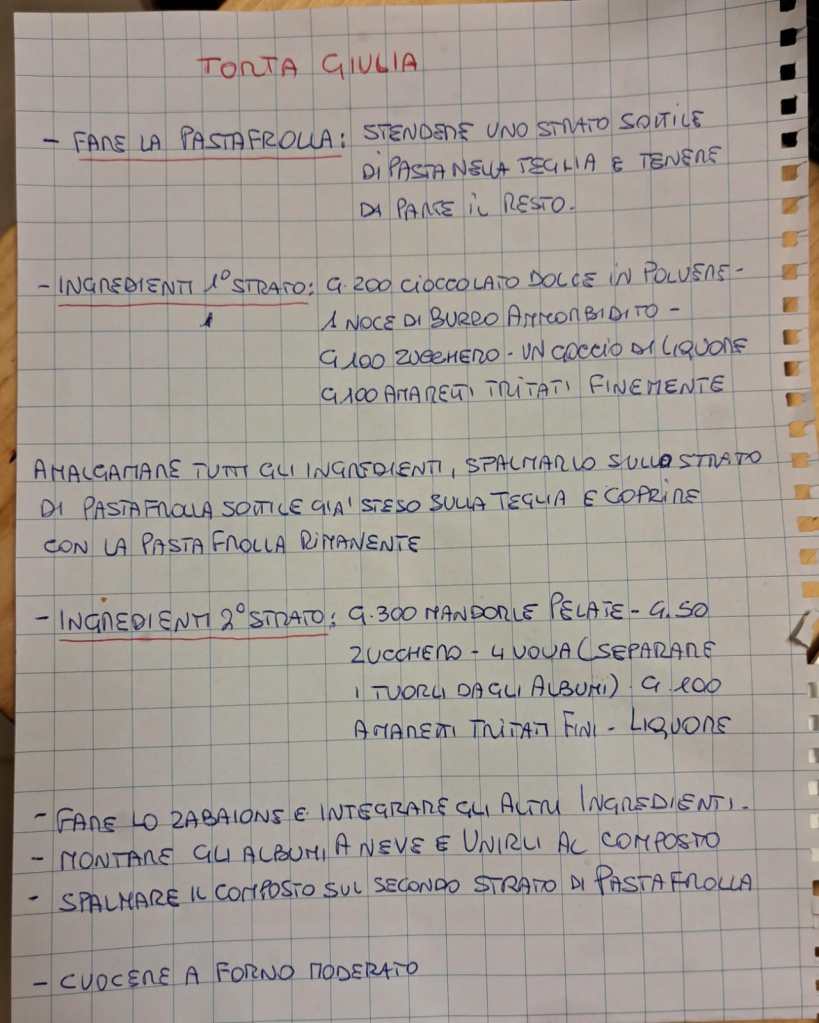 TORTA GIULIA
- FARE LA PASTAFROLLA: STENDERE UNO STRATO SOTTILE
DI PASTA NELLA TEGLIA E TENERE
DA PARTE IL RESTO.
- INGREDIENTI 1° STRATO: G.200 CIOCCOLATO DOLCE IN POLVERE -
1
1 NOCE DI BURRO AMMORBIDITO -
G 100 ZUCCHERO - UN GOCCIO DI LIQUORE
G 100 AMARETTI TRITATI FINEMENTE
AMALGAMARE TUTTI GLI INGREDIENTI, SPALMARLO SULLO STRATO
DI PASTAFROLLA SOTTILE GIA' STESO SULLA TEGLIA E COPRIRE
CON LA PASTA FROLLA RIMANENTE
- INGREDIENTI 2° STRATO: G.300 MANDORLE PELATE - G.50
ZUCCHERO - 4 UOVA (SEPARARE
I TUORLI DAGLI ALBUMI) G 100
AMARETTI TRITATI FINI - LIQUORE
- FARE LO ZABAIONE E INTEGRARE GLI ALTRI INGREDIENTI.
- MONTARE GLI ALBUMI A NEVE E UNIRLI AL COMPOSTO
- SPALMARE IL COMPOSTO SUL SECONDO STRATO DI PASTAFROLLA
- CUOCERE A FORNO MODERATO